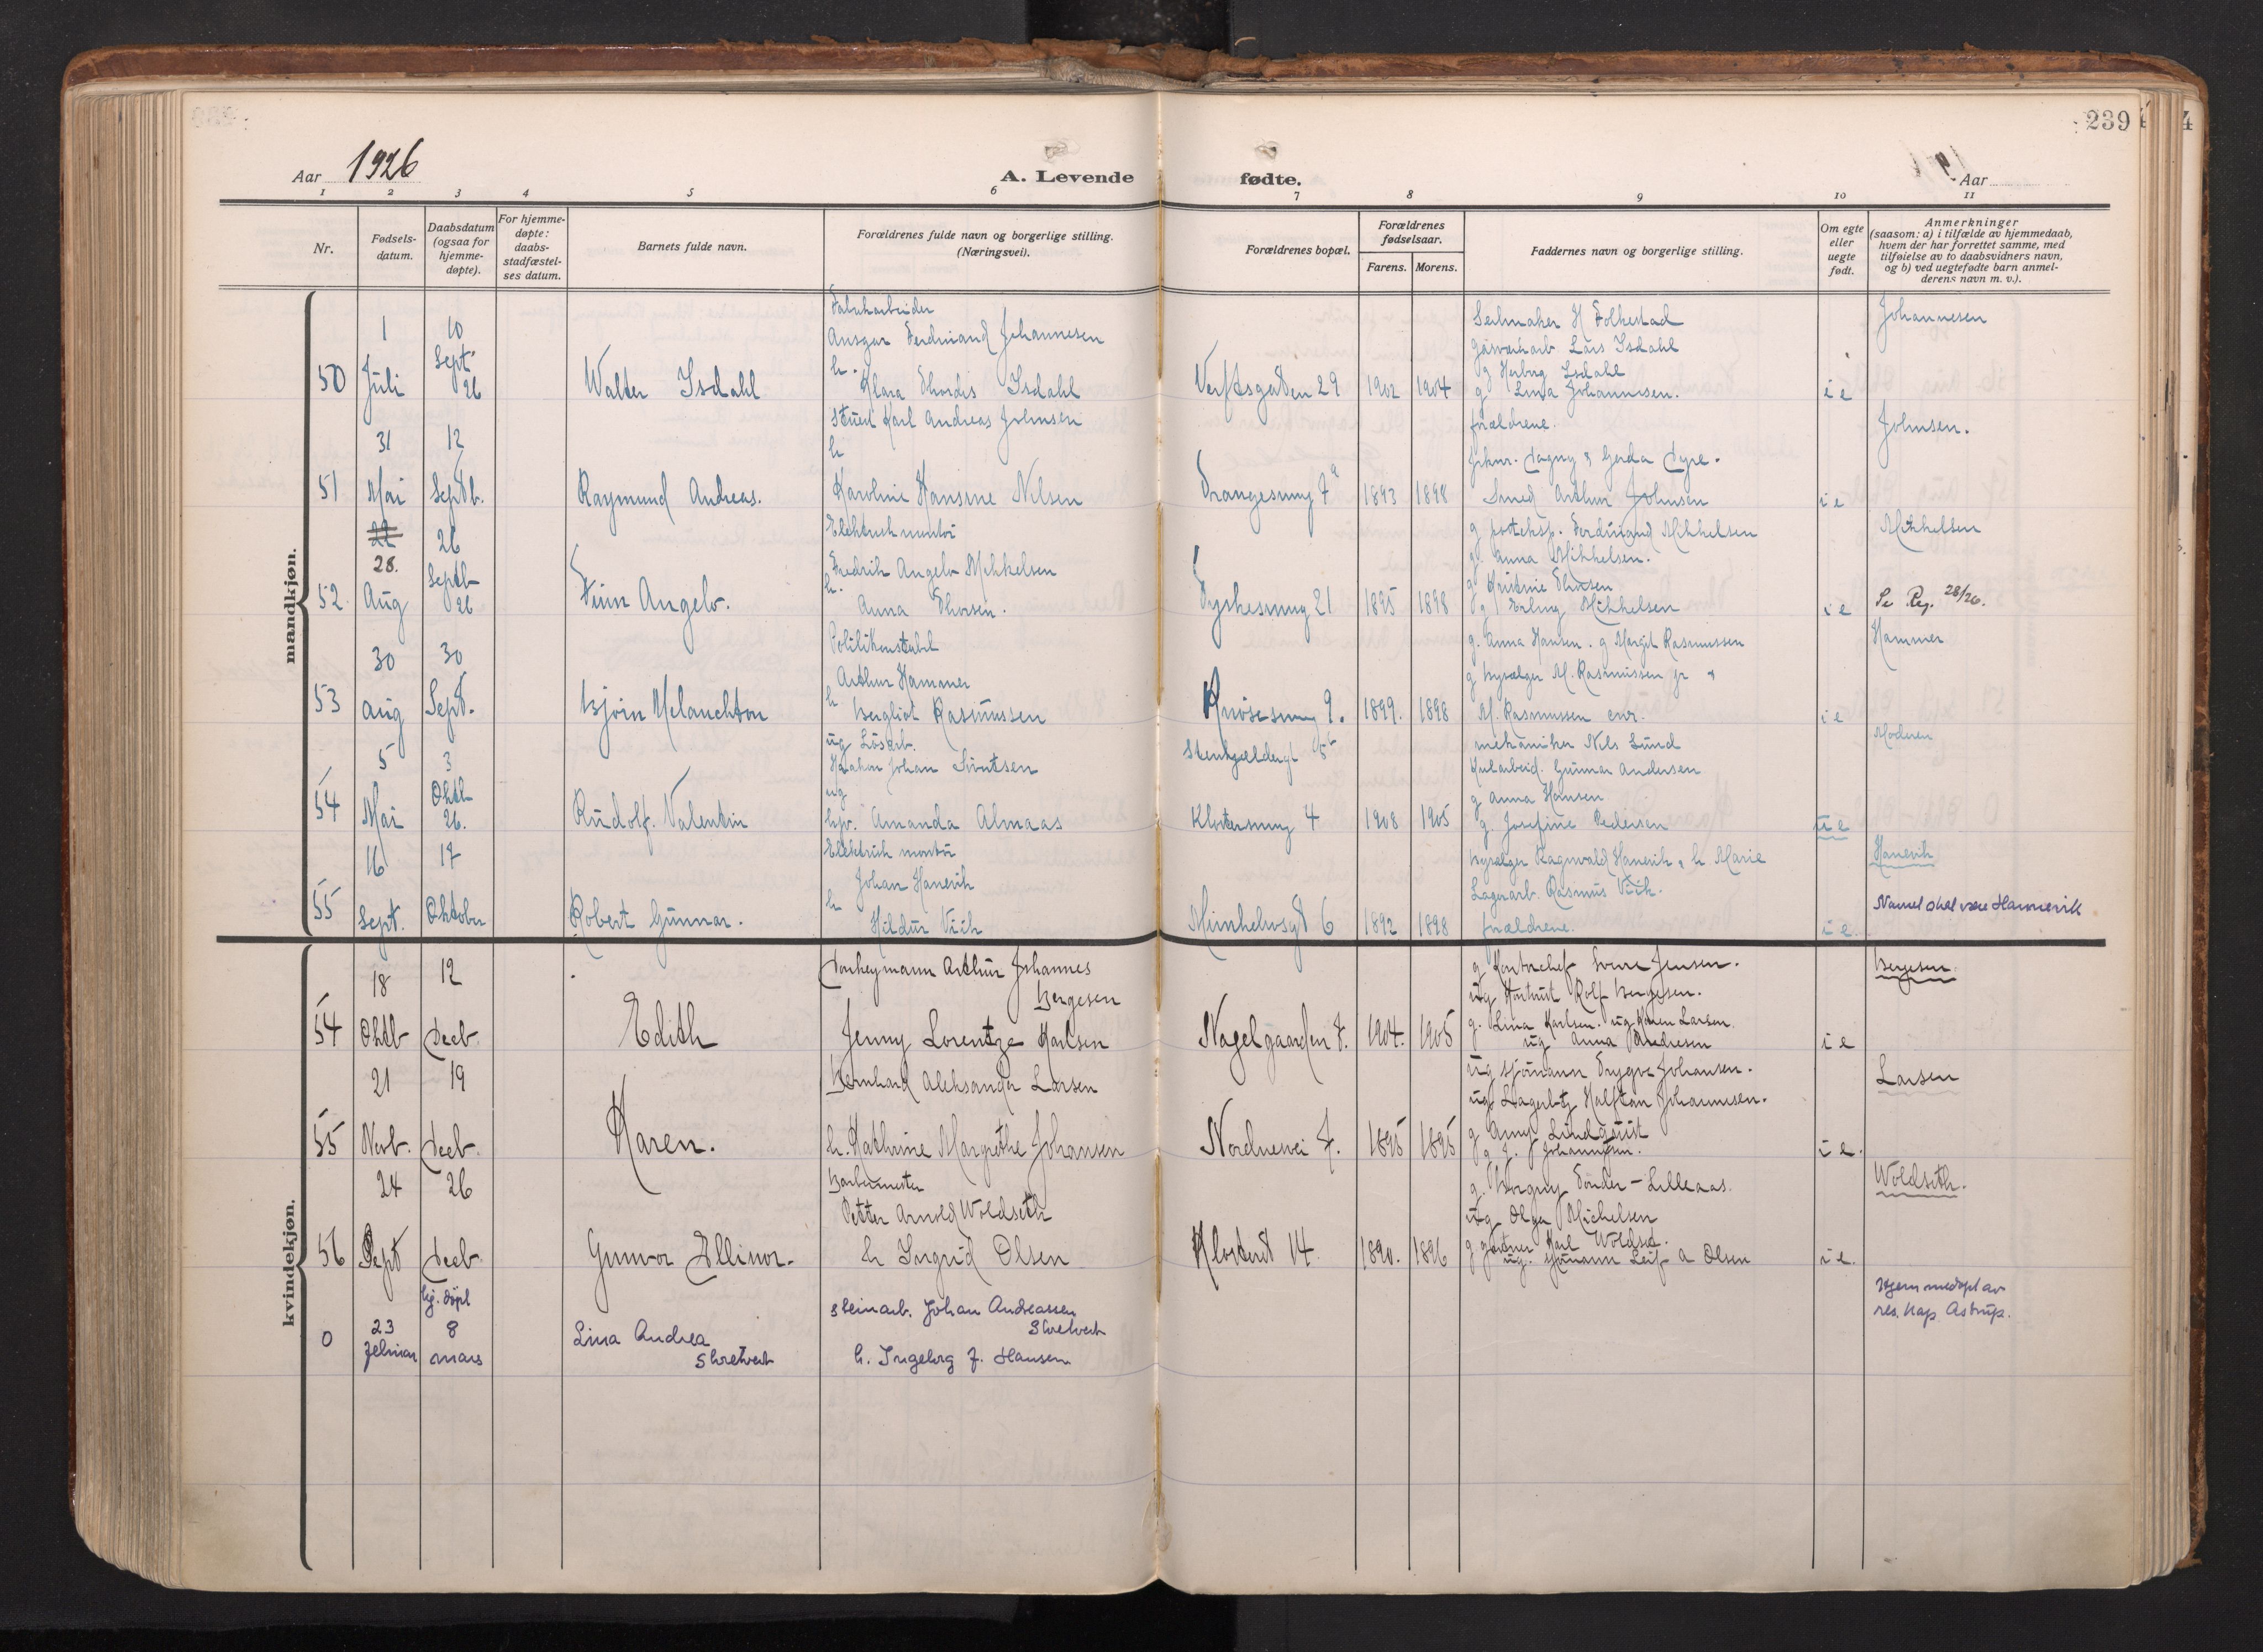 239
Aar 1926
A. Levende fødte.
Aar
1 2 3 4 5 6 7 8 9 10 11
Nr.
Fødsels-
datum.
Daabsdatum
(ogsaa for
hjemme-
døpte).
For hjemme-
døpte:
daabs-
stadfæstel-
ses datum.
Barnets fulde navn.
Forældrenes fulde navn og borgerlige stilling.
(Næringsvei).
Forældrenes bopæl.
Forældrenes
fødselsaar.
Farens. Morens.
Faddernes navn og borgerlige stilling.
Om egte
eller
uegte
født.
Anmerkninger
(saasom: a) i tilfælde av hjemmedaab,
hvem der har forrettet samme, med
tilføielse av to daabsvidners navn,
og b) ved uegtefødte barn anmel-
derens navn m. v.).
mandkjøn.
50
1
Juli
10
Sept
26
Walter Isdahl
Fabrikarbeider
Ansgar Ferdinand Johannesen
h.
Klara Thordis Isdahl
Verftsgaten 29
1902
1904
Seilmaker H Folkestad
Gasverkarb Lars Isdahl
g Herborg Isdahl
g Lina Johannesen.
i e
Johannesen
51
31
Mai
12
Septb.
Raymund Andreas.
Stuert Karl Andreas Johnsen
h
Karoline Hansine Nilsen
Vrangesmug 7a
1893
1898
forældrene.
frknr. Dagny & Gerda Dyre.
Smed Arthur Johnsen
i e
Johnsen.
52
28.
Aug
26
Septb
26
Finn Angelo.
Elektrisk montør
Fredrik Angelo Mikkelsen
h.
Anna Thorsen.
Tyskesmug 21
1895
1898
g posteksp. Ferdinand Mikkelsen
g. Anna Mikkelsen.
g Kristine Thorsen
g Erling Mikkelsen
i e
Mikkelsen
Se Reg. 28/26.
53
30
Aug
30
Sept.
Bjørn Melanchton
Politikonstabel
Arthur Hammer
h
Bergliot Rasmussen
Knøsesmug 9.
1899.
1898
g. Anna Hansen. g Margit Rasmussen
g Byselger M. Rasmussen jr
M. Rasmussen enr.
i e
Hammer
54
5
Mai
3
Oktb
26.
Rudolf. Valentin
ug Løsarb.
Haakon Johan Sivertsen
ug
hjv. Amanda Almaas
Stenkjeldergt 5b
Klostersmug 4
1908
1905
mekaniker Nils Lund
Kularbeid. Gunnar Andersen
g Anna Hansen
g. Josefine Pedersen
u e
Moderen
55
16
Sept.
17
Oktober
Robert Gunnar.
Elektrisk montør
Johan Hanevik
h
Hildur Viik
Munkebosgt 6
1892
1898
Byselger Ragnvald Hanevik & h. Marie
Lagerarb. Rasmus Viik.
forældrene.
i e.
Hanevik
Navnet skal være Hannevik
kvindekjøn.
54
18
Oktb
12
Decb.
Edith
Donkeymann Arthur Johannes
Bergesen
Jenny Lorentze Karlsen
Nagelgaarden 7.
1904.
1905
g Kontorchef Sverre Jensen.
ug Kontorist Rolf Bergesen.
g. Lina Karlsen. ug Karen Larsen.
ug Anna Andresen
i e
Bergesen.
55
21
Novb.
19
Decb.
Karen.
Bernhard Aleksander Larsen
h. Kathrine Margrethe Johansen
Nordnesvei 7.
1895
1895
ug sjømann Trygve Johansen.
ug. Lagerbtj Halftan Johannesen.
g Anny Lindqvist
g J. Johannesen.
i e.
Larsen
56
24
Sept
26
Decb.
Gunvor Ellinor.
Barbermester
Petter Arnold Woldseth
h Ingrid Olsen
Klosteret 14.
1890.
1896
g. Borgny Tønder-Lilleaas.
ug Olga Michelsen
g gartner Karl Woldset.
ug. sjømann Leif A Olsen
i e.
Woldseth.
0
23
februar
hj. døpt
8
mars
Lina Andrea
Skretveit
steinarb. Johan Andreassen
Skretveit
h. Ingeborg J. Hansen
Hjemmedøpt av
res. kap Astrup.